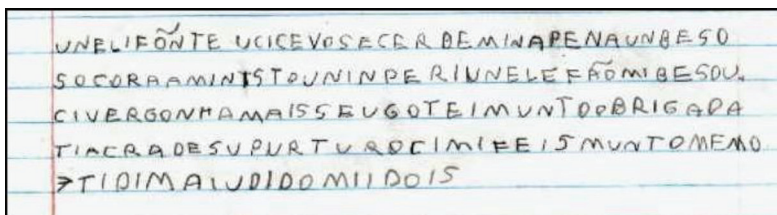 UNELIFÕNTE UCICEVOSECERBEMINAPENAUNBESO
SOCORAAMINTSTOUNINPERIUNELEFÃOMIBESOU.
CIVERGONHAMAISSEUGOTEIMUNTOOBRIGADA
TIACRADESUPURTUROCIMIFEISMUNTOMEMO
→TIDIMAIUDIDOMIIDOIS